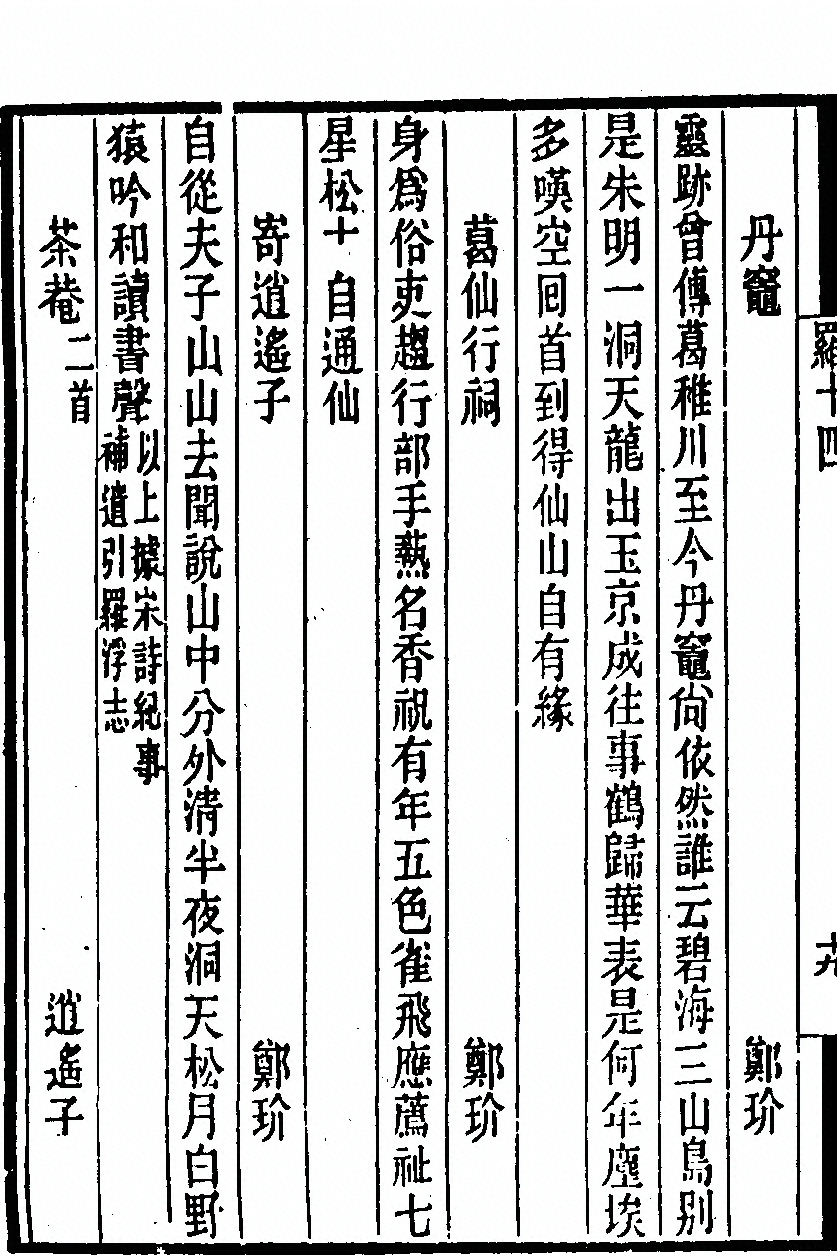 羅十四
丹竈　鄭玠
靈跡曾傳葛稚川至今丹竈尙依然誰云碧海三山島别
是朱明一洞天龍出玉京成往事鶴歸華表是何年塵埃
多嘆空囘首到得仙山自有緣
葛仙行祠　鄭玠
身爲俗吏趨行部手熱名香祝有年五色雀飛應薦祉七
星松十自通仙
寄逍遙子　鄭玠
自從夫子山山去聞說山中分外清半夜洞天松月白野
猿吟和讀書聲以上據宋詩紀事
補遺引羅浮志
茶菴二首　逍遙子